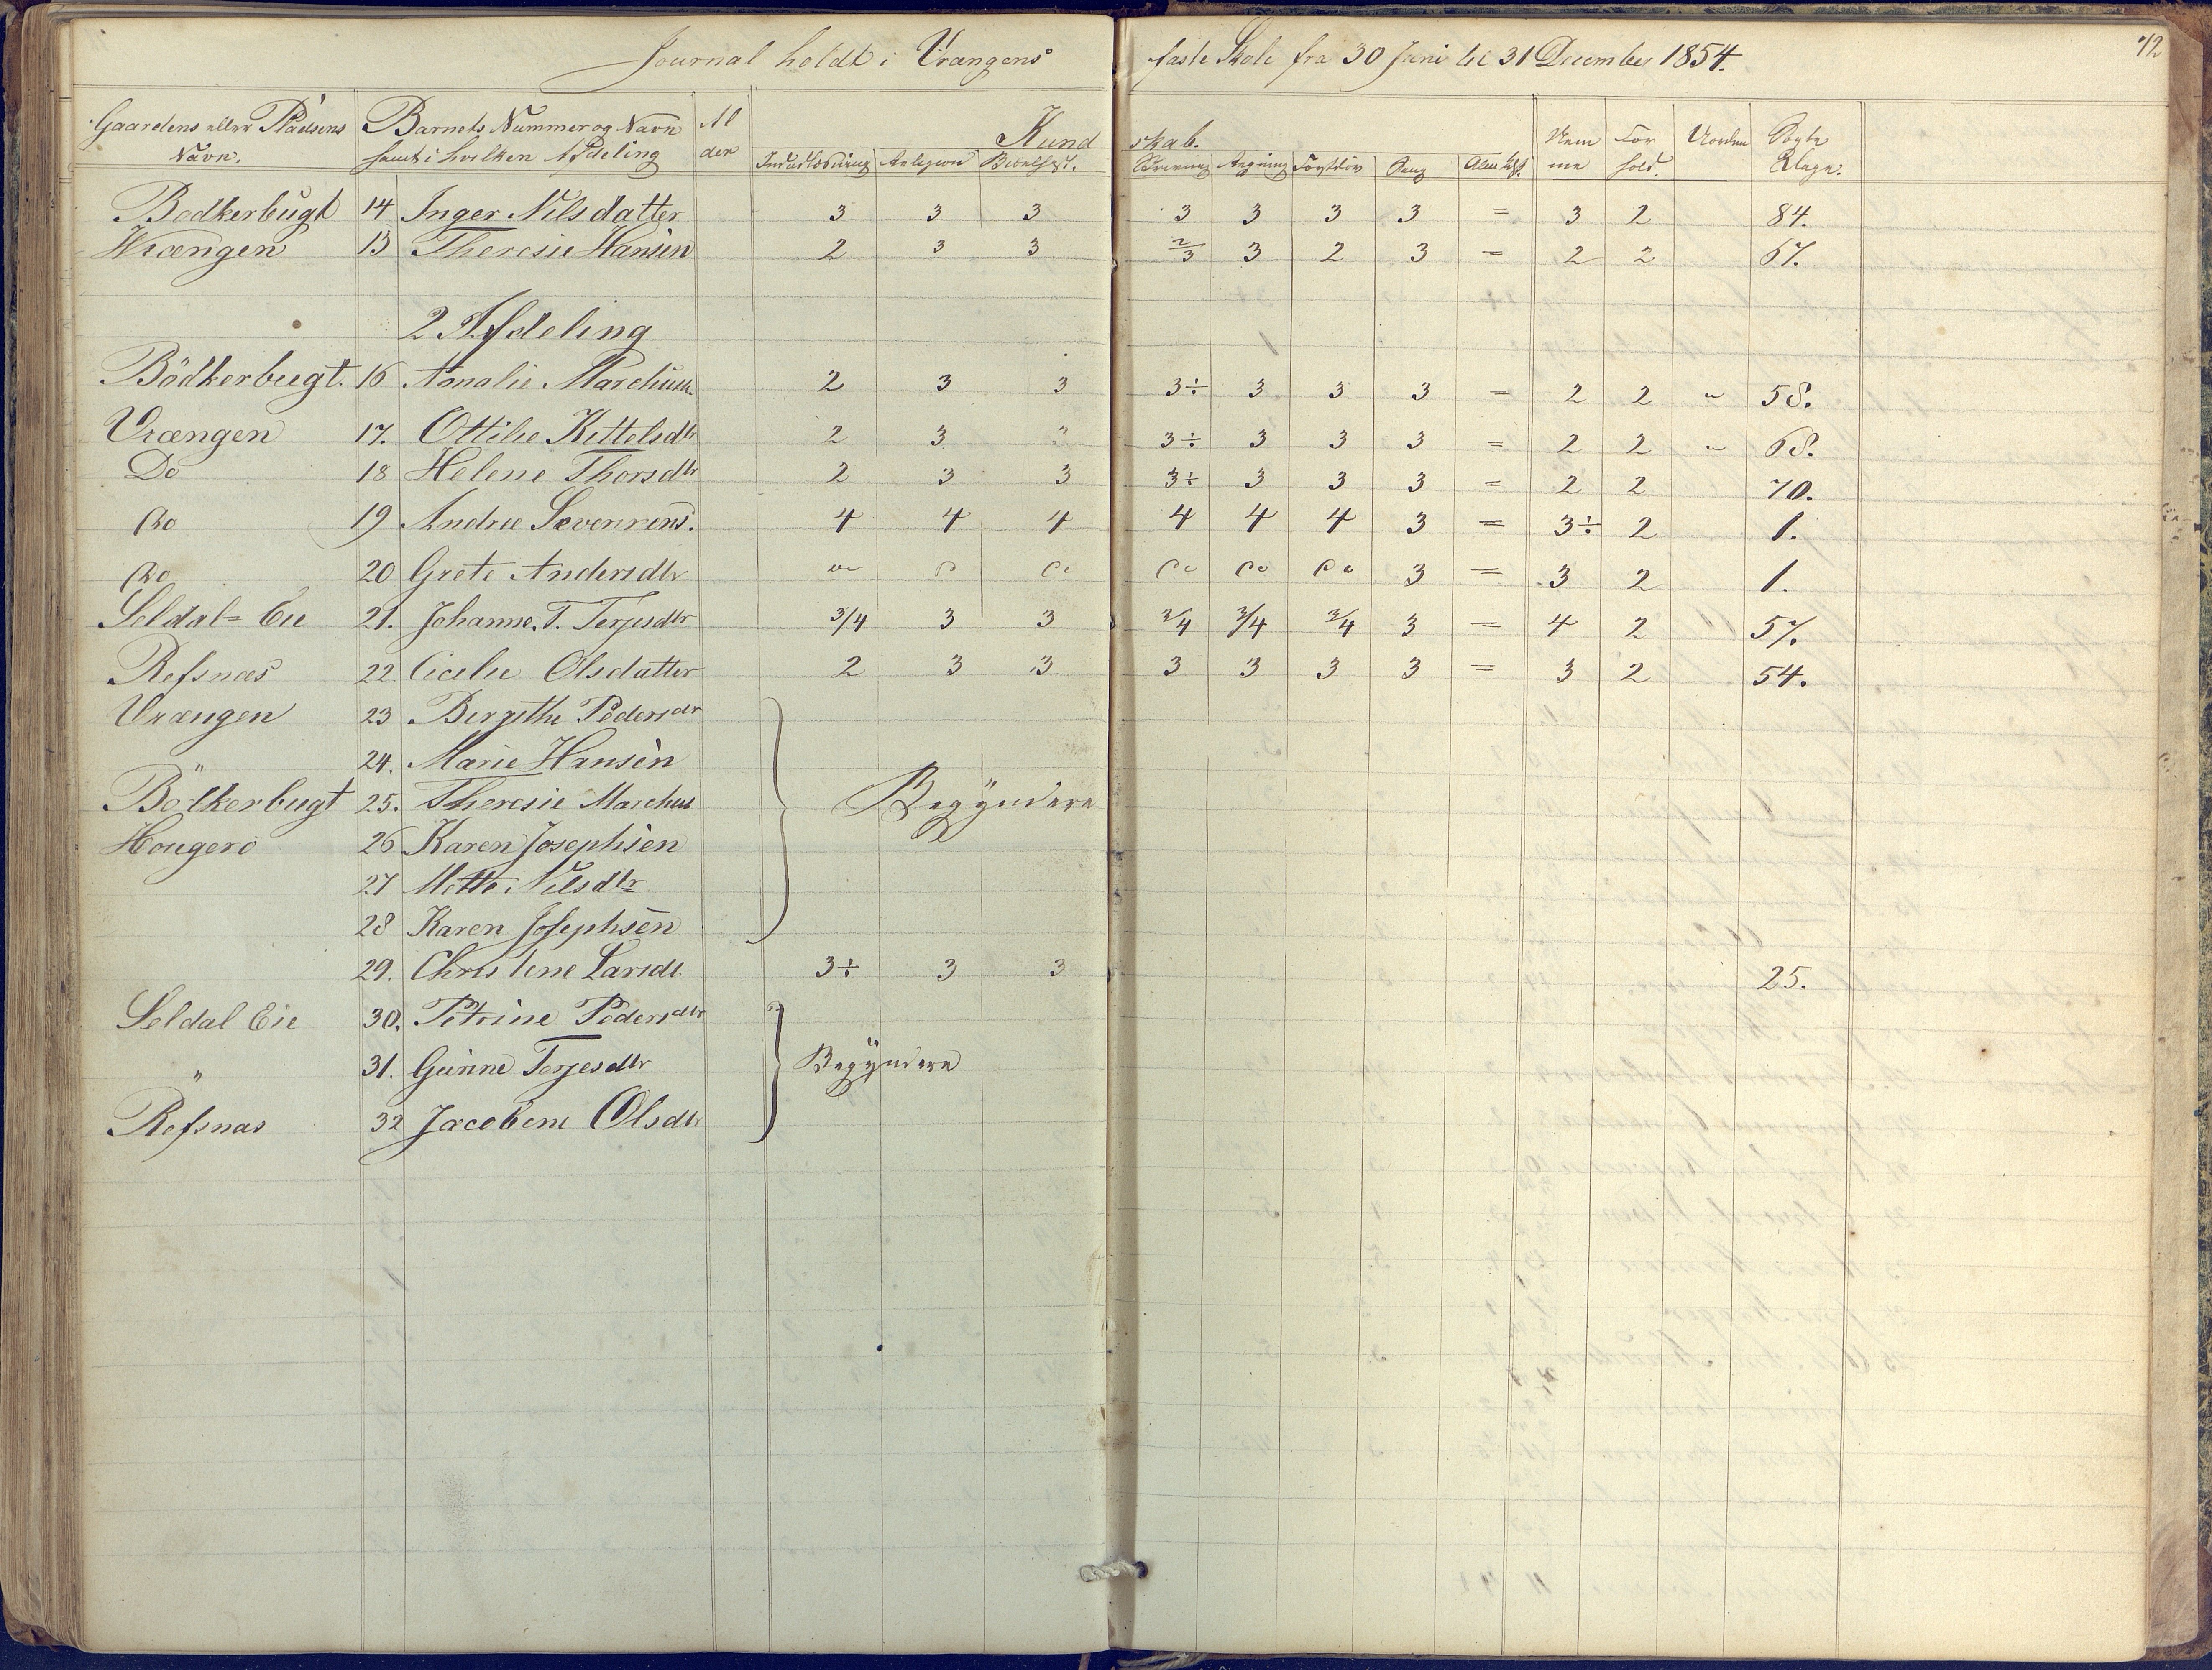 Journal holdt i Vrængens faste Skole fra 30 Juni til 31 December 1854. 72
Gaardens eller Pladsens Navn. Barnets Nummer og Navn samt i hvilken Afdeling Al der Kund skab. Nem me For hold. Uorden Søgte Dage.
Indenlæsning Religion Bibelhist. Skrivning Regning Sang
Bødkerbugt 14 Inger Nilsdatter 3 3 3 3 3 3 3 = 3 2 84.
Wrængen 15 Theresie Hansen 2 3 3 2/3 3 2 3 = 2 2 67.
2 Afdeling
Bödkerbugt. 16 Amalie 2 3 3 3÷ 3 3 3 = 2 2 " 58.
Vrængen 17. Ottilie Kittelsdtr 2 3 " 3÷ 3 3 3 = 2 2 " 68.
Do 18 Helene Thorsdtr 2 3 3 3÷ 3 3 3 = 2 2 70.
Do 19 Andrea Severinens. 4 4 4 4 4 4 3 = 3÷ 2 1.
Do 20 Grete Andersdtr 3 = 3 2 1.
Seldal= Eie 21. Johanne. T. Terjesdtr 3/4 3 3 3/4 3/4 3/4 3 = 4 2 57.
Refsnæs 22. Cicilie Olsdatter 2 3 3 3 3 3 3 = 3 2 54.
Vrængen 23 Bergithe Pedersdtr
24. Marie Hansen
Bödkerbugt 25. Theresie Begÿndere
Hougerö 26 Karen Josephsen
27 Mette Nilsdtr
28 Karen Josephsen
29. Christine Larsdt. 3÷ 3 3 25.
Seldal Eie 30. Petrine Pedersdtr
" 31. Gunne Terjesdtr Begÿndere
Refsnas 32 Jacobine Olsdtr